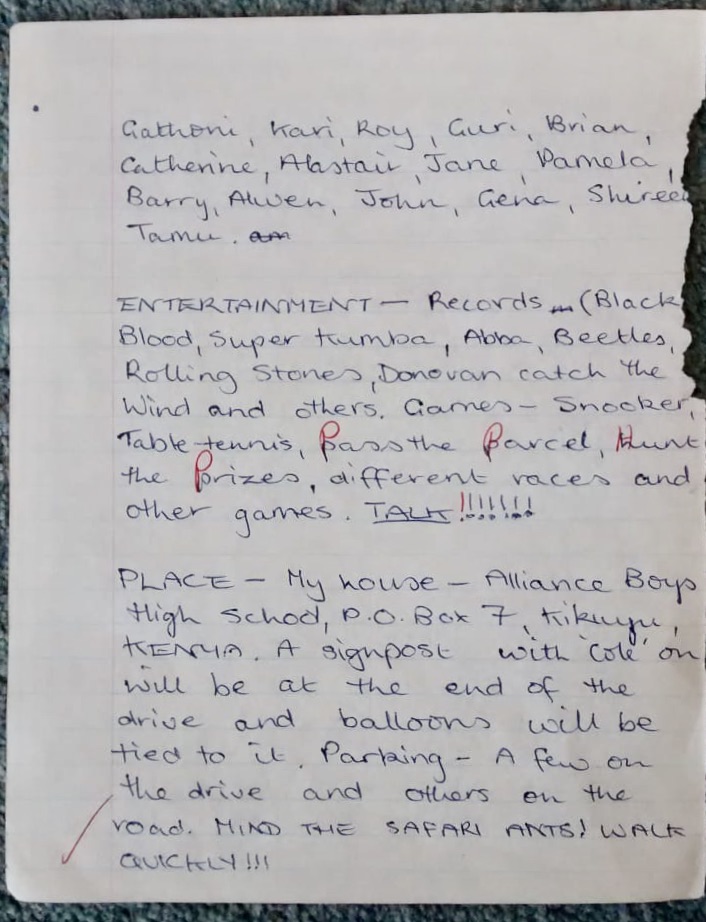 Gathoni, Kari, Roy, Guri, Brian,
Catherine, Alastair, Jane, Pamela,
Barry, Alwen, John, Gena, Shiree
Tamu. am
ENTERTAINMENT - Records (Black
Blood, Super Kumba, Abba, Beetles,
Rolling Stones, Donovan catch the
Wind and others. Games - Snooker,
Table-tennis, Pass the Parcel, Hunt
the Prizes, different races and
other games. TALK!!!!!!!
PLACE - My house - Alliance Boys
High School, P.O. Box 7, Kikuyu,
KENYA. A signpost with 'Cole' on
will be at the end of the
drive and balloons will be
tied to it. Parking - A few on
the drive and others on the
road. MIND THE SAFARI ANTS! WALK
QUICKLY!!!